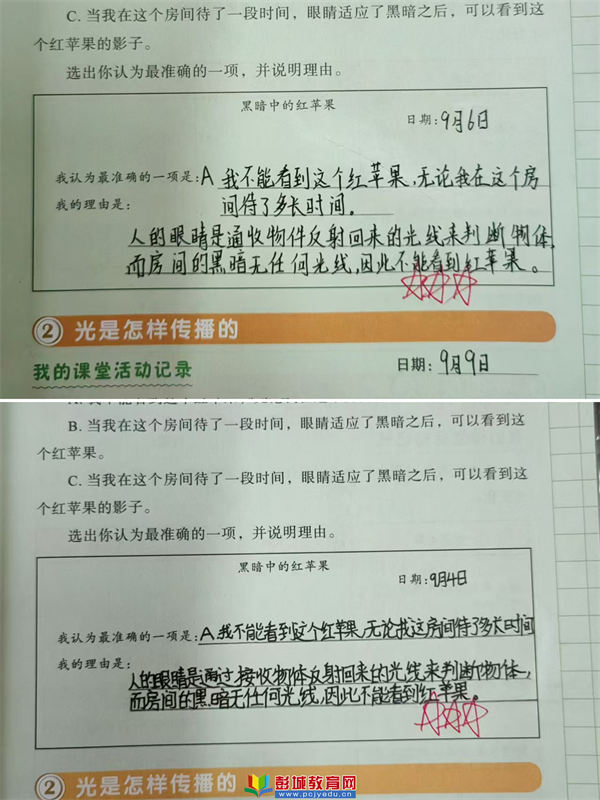 C. 当我在这个房间待了一段时间，眼睛适应了黑暗之后，可以看到这
个红苹果的影子。
选出你认为最准确的一项，并说明理由。
黑暗中的红苹果
日期：9月6日
我认为最准确的一项是：A 我不能看到这个红苹果，无论我在这个房
我的理由是： 间待了多长时间。
人的眼睛是通收物件反射回来的光线来判断物体，
而房间的黑暗无任何光线，因此不能看到红苹果。
2 光是怎样传播的
我的课堂活动记录 日期：9月9日
B. 当我在这个房间待了一段时间，眼睛适应了黑暗之后，可以看到这
个红苹果。
C. 当我在这个房间待了一段时间，眼睛适应了黑暗之后，可以看到这
个红苹果的影子。
选出你认为最准确的一项，并说明理由。
黑暗中的红苹果
日期：9月4日
我认为最准确的一项是：A 我不能看到这个红苹果，无论我这房间待了多长时间
我的理由是：
人的眼睛是通过接收物体反射回来的光线来判断物体，
而房间的黑暗无任何光线，因此不能看到红苹果。
2 光是怎样传播的
彭城教育网
www.pcjyedu.cn